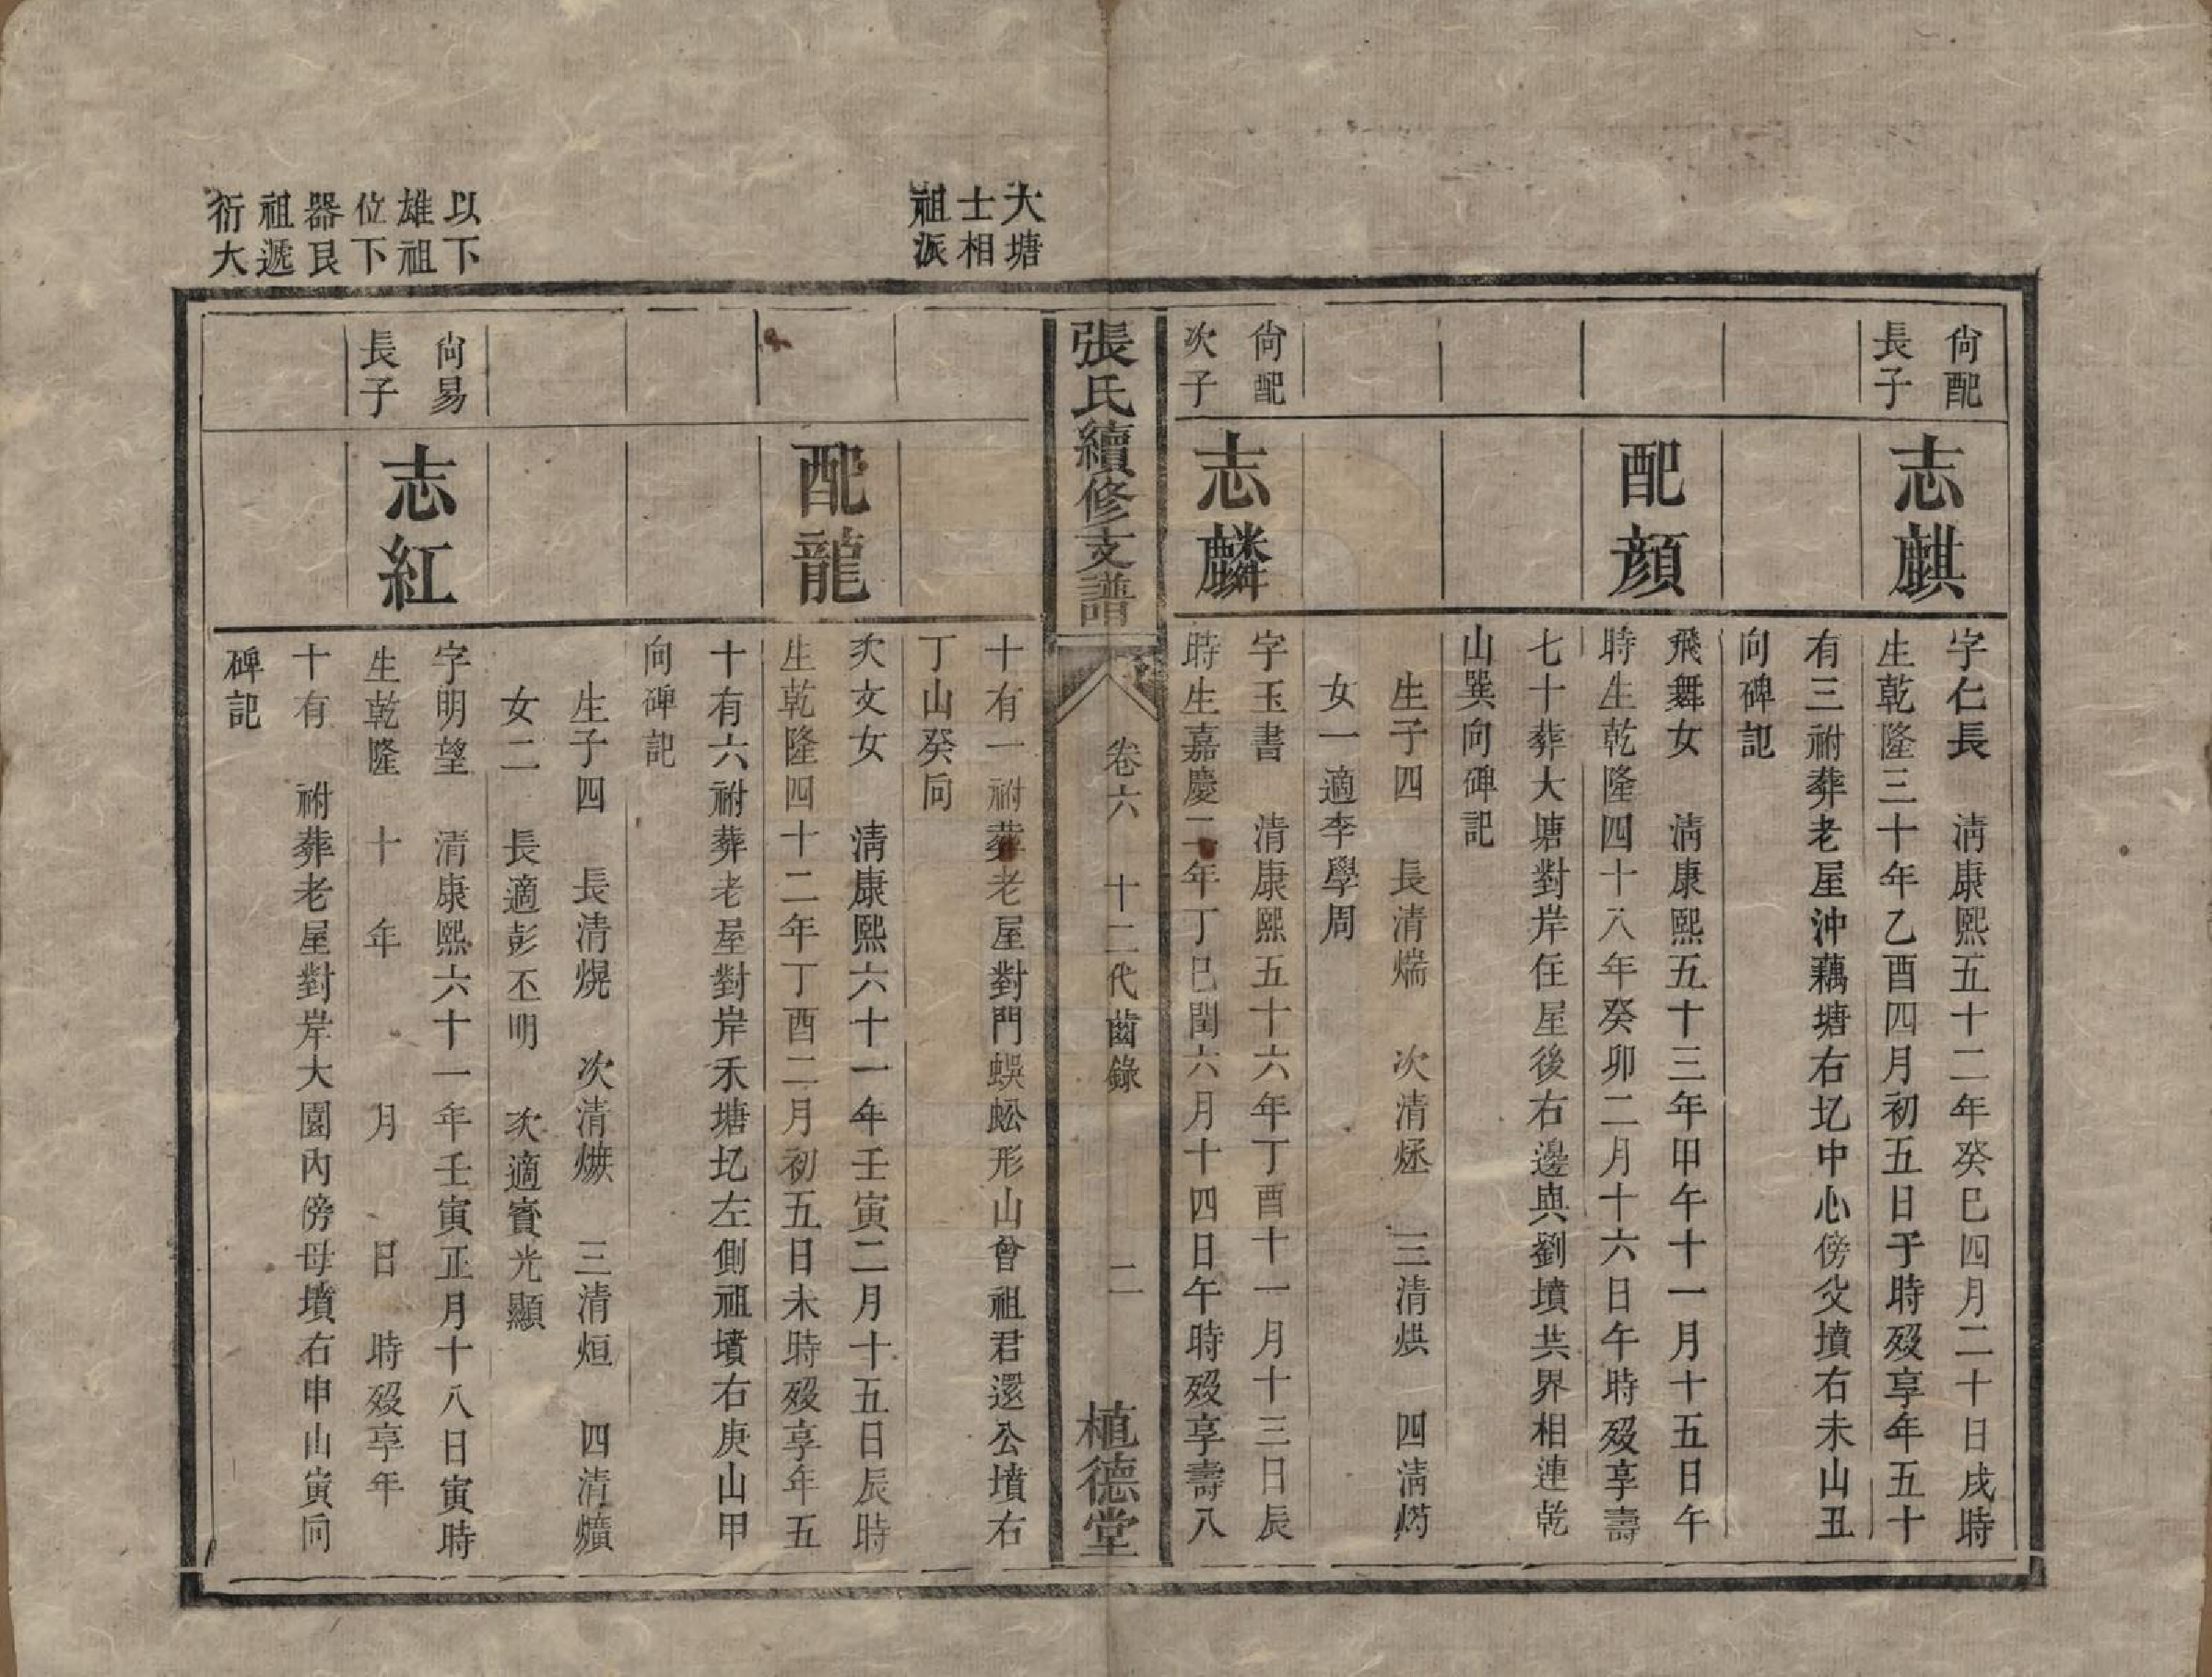 尙配
長子
志麒
字仁長　淸康熙五十二年癸巳四月二十日戌時
生乾隆三十年乙酉四月初五日子時歿享年五十
有三祔葬老屋沖藕塘右圠中心傍父墳右未山丑
向碑記
配顔
飛舞女　淸康熙五十三年甲午十一月十五日午
時生乾隆四十八年癸卯二月十六日午時歿享壽
七十葬大塘對岸任屋後右邊與劉墳共界相連乾
山巽向碑記
生子四　長清煓　次清烾　三清烘　四清㷟
女一適李學周
尙配
次子
志麟
字玉書　清康熙五十六年丁酉十一月十三日辰
時生嘉慶二年丁巳閏六月十四日午時歿享壽八
張氏續修支譜
卷六　十二代齒錄　二
植德堂
大塘
士相
祖派
十有一祔葬老屋對門蜈蚣形山曾祖君還公墳右
丁山癸向
配龍
次文女　清康熙六十一年壬寅二月十五日辰時
生乾隆四十二年丁酉二月初五日未時歿享年五
十有六祔葬老屋對岸禾塘圠左側祖墳右庚山甲
向碑記
生子四　長清熀　次清　三清烜　四清爌
女二　長適彭丕明　次適賓光顯
以下
雄祖
位下
器艮
祖遞
衍大
尙易
長子
志紅
字明望　清康熙六十一年壬寅正月十八日寅時
生乾隆　十　年　月　日　時歿享年
十有　祔葬老屋對岸大園內傍母墳右申山寅向
碑記